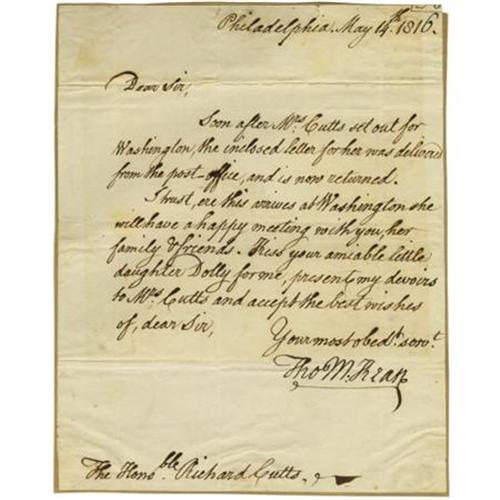 Philadelphia. May 14th. 1816.
Dear Sir,
Soon after Mrs Cutts set out for
Washington, the inclosed letter for her was delivered
from the post-office, and is now returned.
I trust, ere this arrives at Washington she
will have a happy meeting with you, her
family & friends. Kiss your amiable little
daughter Dolly for me, present my devoirs
to Mrs Cutts and accept the best wishes
of, dear Sir,
Your most obedt. servt.
Tho M:Kean
The Honoble. Richard Cutts.